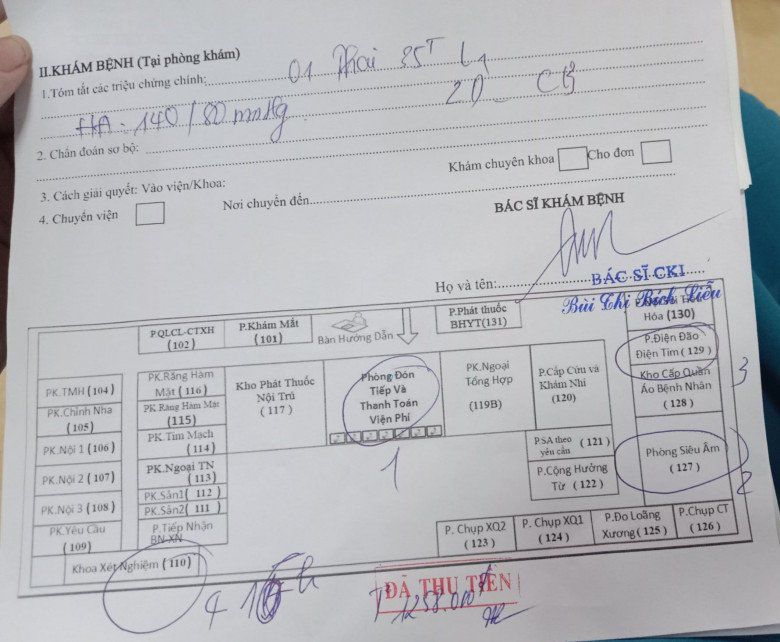 II.KHÁM BỆNH (Tại phòng khám)
1.Tóm tắt các triệu chứng chính: 01 thai 35T
HA: 140/80 mmHg 2D
2. Chẩn đoán sơ bộ:
3. Cách giải quyết: Vào viện/Khoa:
Khám chuyên khoa Cho đơn
4. Chuyển viện Nơi chuyển đến
BÁC SĨ KHÁM BỆNH
Họ và tên: BÁC SĨ CKI
Bùi Thị Bích Liễu
P.QLCL-CTXH
(102)
P.Khám Mắt
(101)
Bàn Hướng Dẫn
P.Phát thuốc
BHYT(131)
Hóa (130)
PK.TMH (104)
PK.Chỉnh Nha
(105)
PK.Nội 1 (106)
PK.Nội 2 (107)
PK.Nội 3 (108)
PK.Yêu Cầu
(109)
PK.Răng Hàm
Mặt (116)
PK.Răng Hàm Mặt
(115)
PK.Tim Mạch
(114)
PK.Ngoại TN
(113)
PK.Sản1( 112 )
PK.Sản2( 111 )
P.Tiếp Nhận
BN-XN
Khoa Xét Nghiệm (110)
Kho Phát Thuốc
Nội Trú
( 117 )
Phòng Đón
Tiếp Và
Thanh Toán
Viện Phí
1
PK.Ngoại
Tổng Hợp
(119B)
P.Cấp Cứu và
Khám Nhi
(120)
P.SA theo
yêu cầu (121)
P.Cộng Hưởng
Từ ( 122 )
P.Điện Đão
Điện Tim ( 129 )
3
Kho Cấp Quần
Áo Bệnh Nhân
( 128 )
Phòng Siêu Âm
(127)
2
P. Chụp XQ2
( 123 )
P. Chụp XQ1
( 124 )
P.Đo Loãng
Xương( 125 )
P.Chụp CT
( 126 )
4
ĐÃ THU TIỀN
1258.000đ